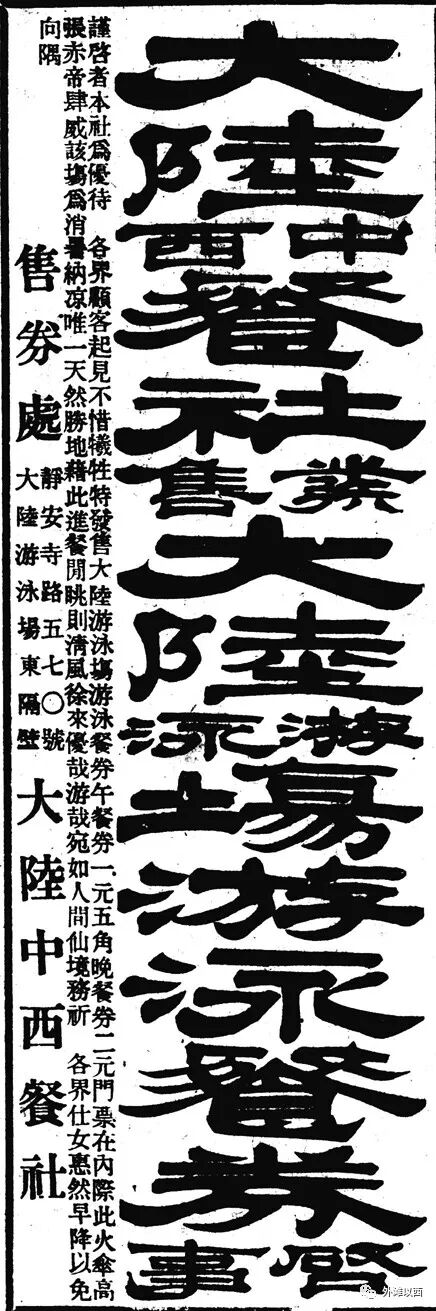 大陸中西餐社發售大陸游泳場游泳餐券啓事
謹啓者本社爲優待 各界顧客起見不惜犧牲特發售大陸游泳塲游泳餐券午餐券一元五角晚餐券二元門票在內際此火傘高
張赤帝肆威該塲爲消暑納凉唯一天然勝地藉此進餐閒眺則清風徐來優哉游哉宛如人間仙境務祈 各界仕女惠然早降以免
向隅
售券處
靜安寺路五七〇號
大陸游泳場東隔壁
大陸中西餐社
外滩以西